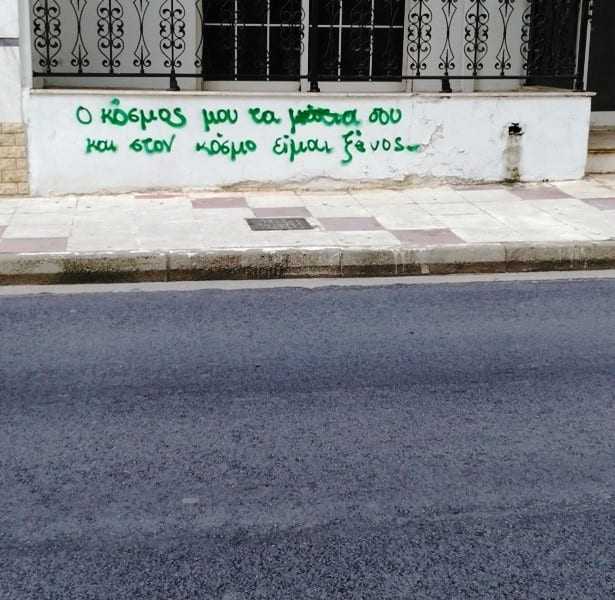 Ο κόσμος μου τα μάτια σου
και στον κόσμο είμαι ξένος